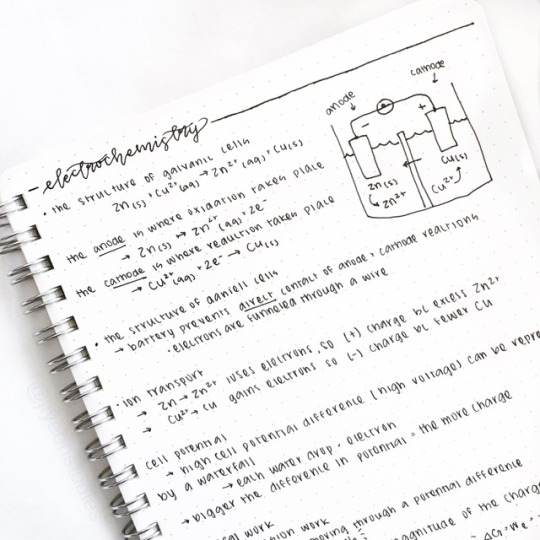 cathode
anode
- +
Zn(s) Cu(s)
Zn²⁺ Cu²⁺
- electrochemistry
• the structure of galvanic cells
Zn(s) + Cu²⁺(aq) → Zn²⁺(aq) + Cu(s)
the anode is where oxidation takes place
→ Zn(s) → Zn²⁺(aq) + 2e⁻
the cathode is where reduction takes place
→ Cu²⁺(aq) + 2e⁻ → Cu(s)
• the structure of daniell cells
→ battery prevents direct contact of anode + cathode reactions
• electrons are funneled through a wire
• ion transport
→ Zn → Zn²⁺ loses electrons, so (+) charge bc excess Zn²⁺
→ Cu²⁺ → Cu gains electrons so (-) charge bc fewer Cu
cell potential
→ high cell potential difference (high voltage) can be repre
by a waterfall
→ each water drop = electron
→ bigger the difference in potential = the more charge
work
work
moving through a potential difference
magnitude of the charge
ΔG =